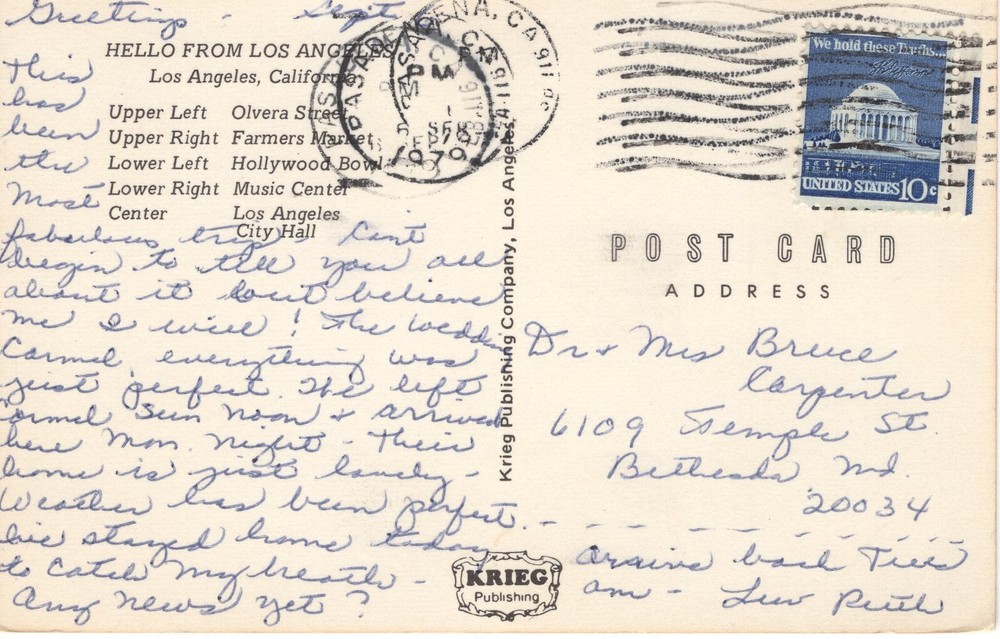 Greetings - Sept
HELLO FROM LOS ANGELES
Los Angeles, California
Upper Left Olvera Street
Upper Right Farmers Market
Lower Left Hollywood Bowl
Lower Right Music Center
Center Los Angeles
City Hall
This
has
been
the
most
fabulous trip - Cant
begin to tell you all
about it but believe
me I will! The wedding
Carmel, everything was
just perfect. We left
Carmel Sun noon & arrived
here Mon. night - Their
home is just lovely -
Weather has been perfect.
We stayed home today
to catch my breath -
Any news yet?
arrive back Tues
am - Luv Ruth
Krieg Publishing Company, Los Angeles
KRIEG
Publishing
PASADENA, CA 911
PM
SEP
1979
We hold these Truths...
UNITED STATES 10c
POST CARD
ADDRESS
Dr & Mrs Bruce
Carpenter
6109 Temple St.
Bethesda Md.
20034